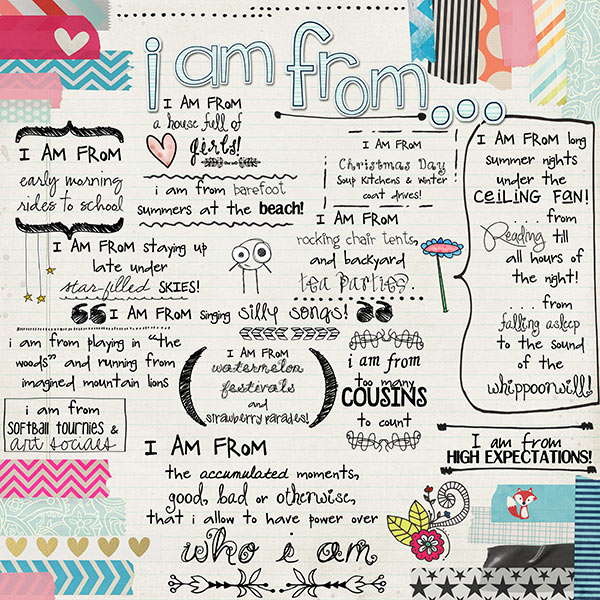 i am from...
I AM FROM
a house full of
girls!
I AM FROM
early morning
rides to school
i am from barefoot
summers at the beach!
I AM FROM
Christmas Day
Soup Kitchens & winter
coat drives!
I AM FROM long
summer nights
under the
CEILING FAN!
. . . from
Reading till
all hours of
the night!
. . . from
falling asleep
to the sound
of the
whippoorwill!
I AM FROM staying up
late under
star-filled SKIES!
I AM FROM
rocking chair tents,
and backyard
tea parties.
" I AM FROM singing silly songs! "
i am from playing in "the
woods" and running from
imagined mountain lions
I AM FROM
watermelon
festivals
and
strawberry parades!
i am from
too many
COUSINS
to count
i am from
SOFTBALL TOURNIES &
art socials
I am from
HIGH EXPECTATIONS!
I AM FROM
the accumulated moments,
good, bad or otherwise,
that i allow to have power over
who i am